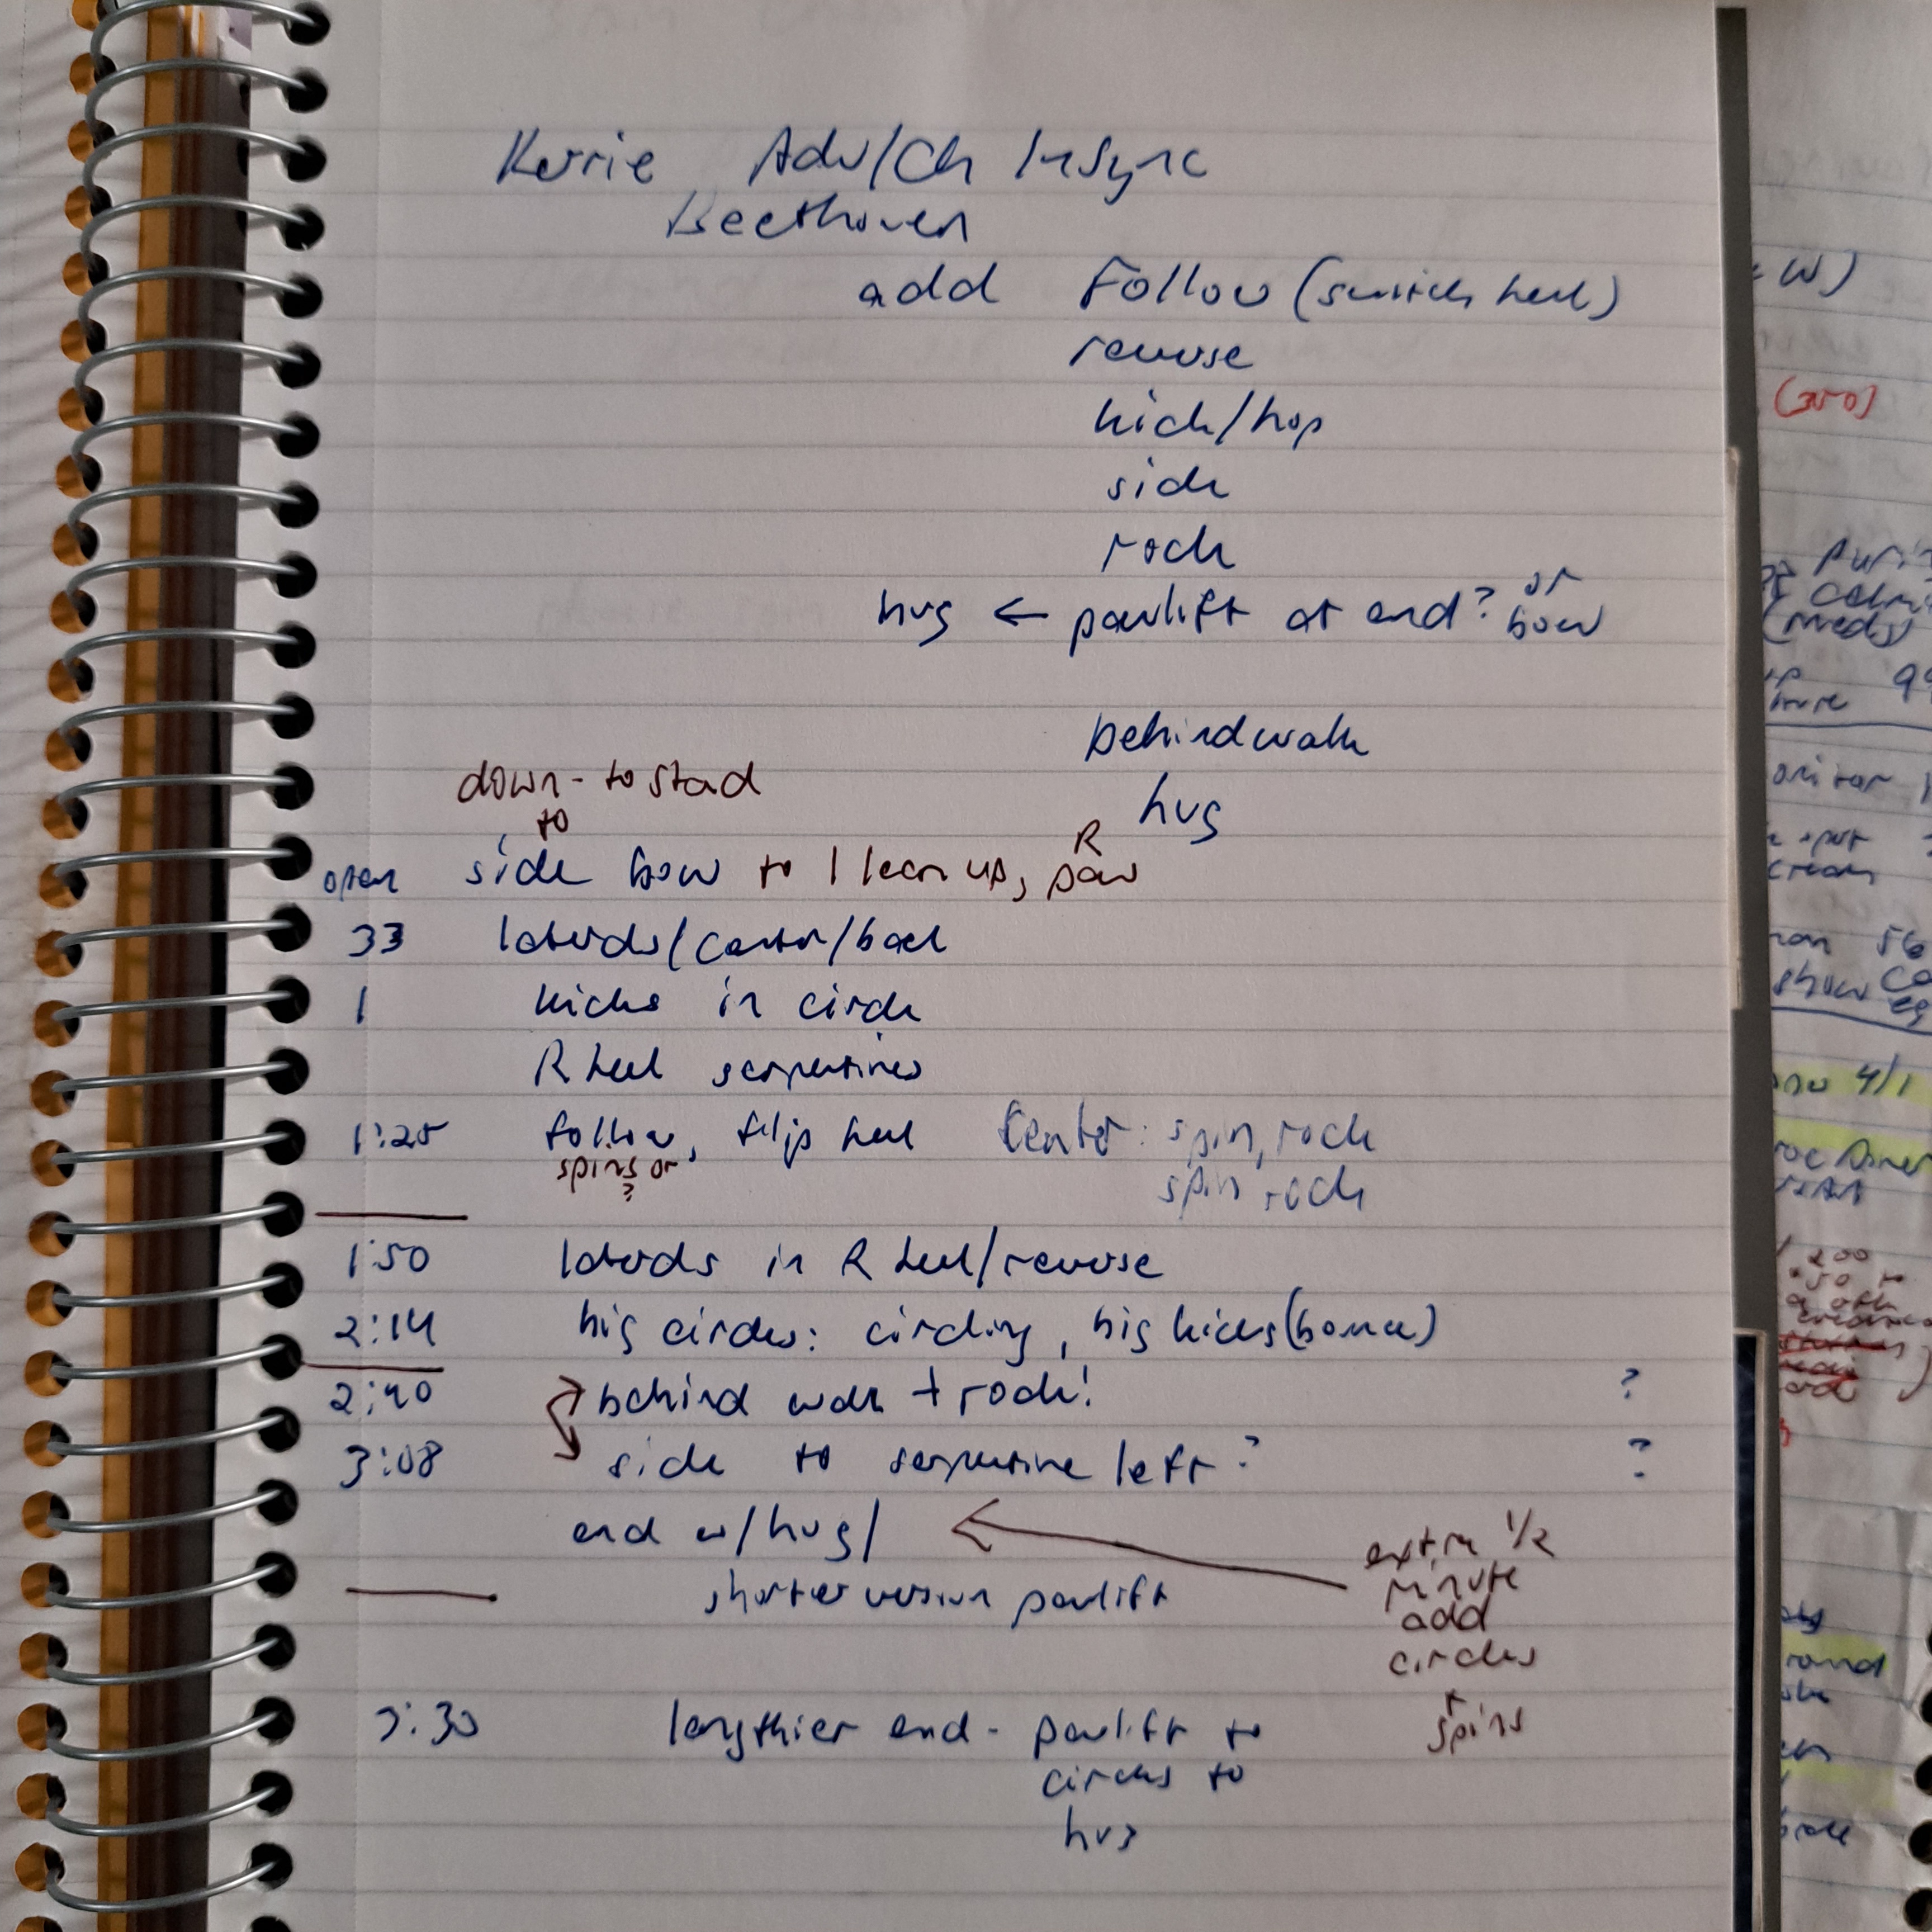 Kerrie Adv/Ch InSync
Beethoven
add Follow (switch heel)
reverse
kick/hop
side
rock
hug ← pawlift at end? or bow
behind walk
hug
down - to stad
to
R
open side bow to 1 lean up, paw
33 laterals/center/back
1 kicks in circle
R heel serpentines
1:25 follow, flip heel Center: spin, rock
spins or ?
spin, rock
1:50 laterals in R heel/reverse
2:14 big circles: circling, big kicks (bounce)
2:40 behind walk + rock! ?
3:08 side to serpentine left? ?
end w/hug/
extra 1/2
minute
add
circles
+
spins
shorter version pawlift
3:30 lengthier end - pawlift to
circles to
hug
W)
(350)
(meds)
onitor
cream
56
show
4/1
200